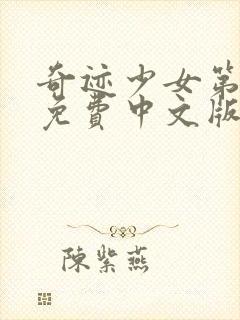 奇迹少女第
免費中文版
陳紫燕